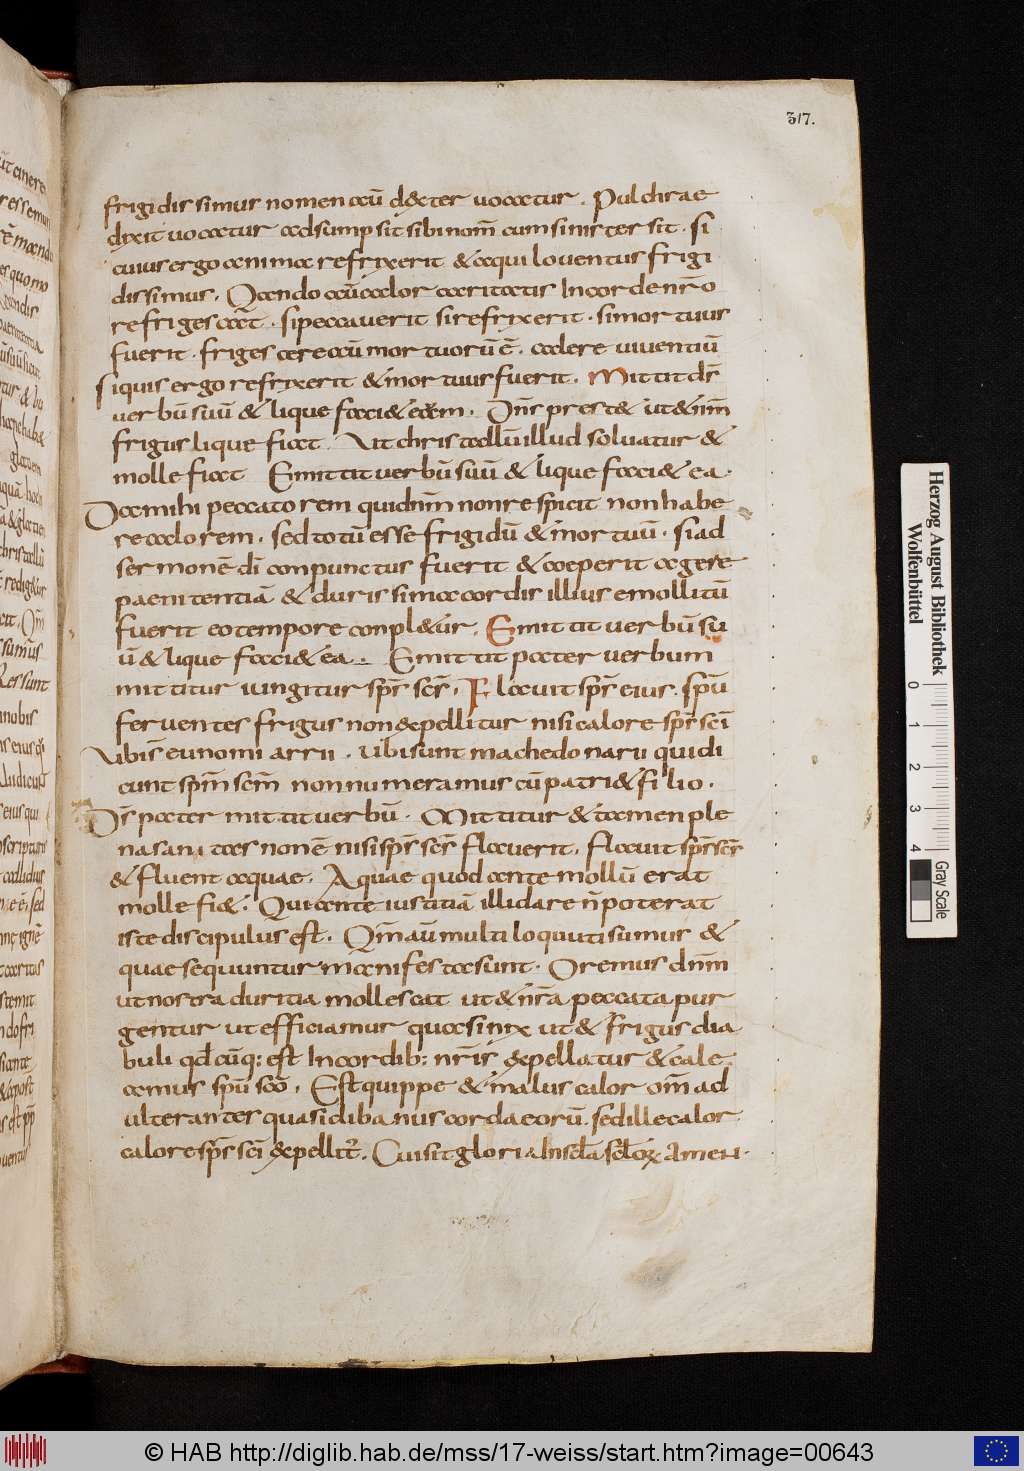 317.
frigidissimus nomen aūt dexter uocatur. Pulchrae
dixit uocatur adsumpsit sibi nom̄ cum sinister sit. si
cuius ergo anima refrixerit & aquilo uentus frigi
dissimus. Quando aūt calor caritatis In corde nr̄o
refrigescat. si peccauerit si refrixerit. si mortuus
fuerit. frigescere aūt mortuorū ē. calere uiuentiū
si quis ergo refrixerit & mortuus fuerit. Mittit dn̄s
uerbū suū & liquefaciet eam. Dn̄s prestet ut & nr̄m
frigus liquefiat. Ut christallū illud soluatur &
molle fiat Emittit uerbū suū & liquefaciet ea.
Da mihi peccatorem qui dn̄m non respicit non habe
re calorem. sed totū esse frigidū & mortuū. si ad
sermonē dī conpunctus fuerit & coeperit agere
paenitentiā & durissima cordis illius emollitū
fuerit eo tempore conpletur. Emittit uerbū su
ū & liquefaciet ea. Emittit pater uerbum
mittitur iungitur sp̄s sc̄s. Flauit sp̄s eius. sp̄u
feruentes frigus non expellitur nisi calore sp̄s sc̄i
Ubi s̄ eunomiarrii. ubi sunt machedonaru qui di
cunt sp̄m sc̄m non numeramus cū patri & filio.
Ds̄ pater mittit uerbū. Mittitur & tamen ple
na sanitas non ē nisi sp̄s sc̄s flauerit. flauit sp̄s sc̄s
& fluent aquae. Aquae quod ante mollū erat
molle fiet. Qui ante iustitiā illidare n̄ poterat
iste discipulus est. Qm̄ aūt multi loquuti sumus &
quae sequuntur manifesta sunt. Oremus dn̄m
ut nostra duritia mollescat ut & nr̄a peccata pur
gentur ut efficiamur quasi nix ut & frigus dia
buli qđ cūq; est In cordib; nr̄is expellatur & cale
amus sp̄u sc̄o. Est quippe & malus calor om̄ ad
ulterantes quasi dibanus corda eorū. sed ille calor
calore sp̄s sc̄i expellit̄. Cui sit gloria In sc̄la sc̄lorꝝ Amen.
Herzog August Bibliothek
Wolfenbüttel
0 1 2 3 4
Gray Scale
© HAB http://diglib.hab.de/mss/17-weiss/start.htm?image=00643